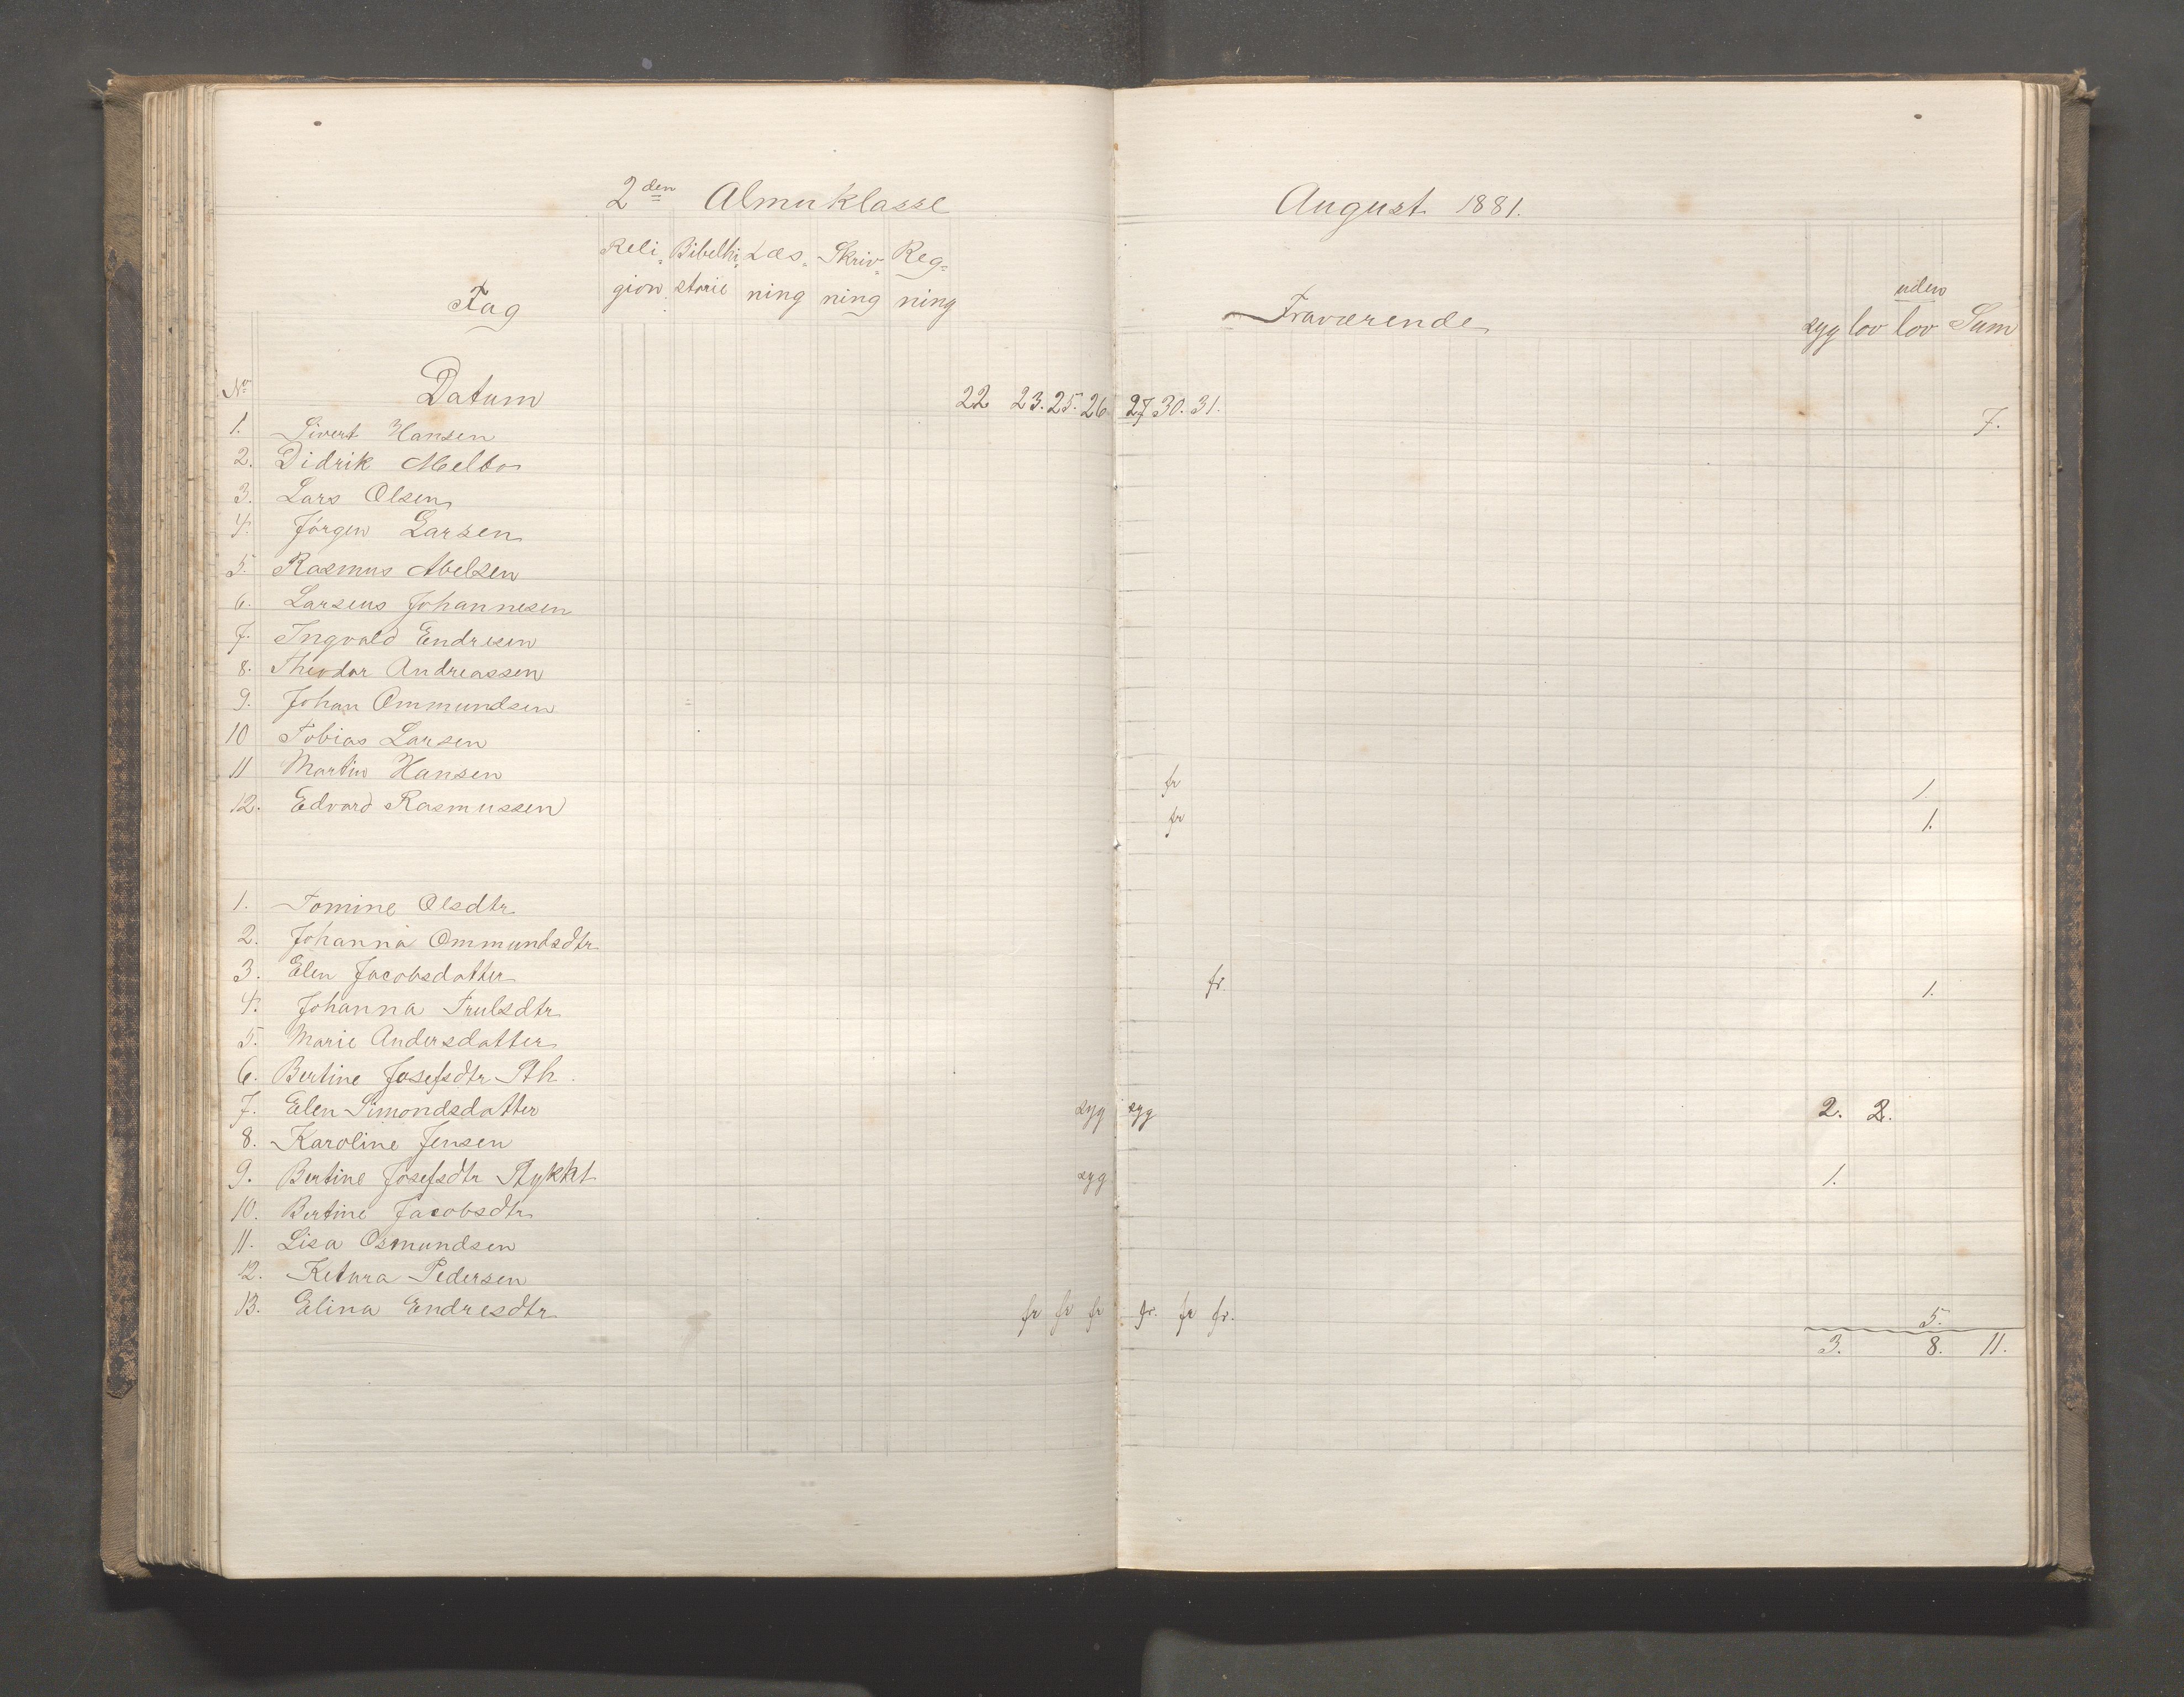 2den Almuklasse August 1881.
Fag Reli- gion Bibelhi- storie Læs- ning Skriv- ning Reg- ning Fraværende syg lov uden lov Sum
No Datum 22 23. 25. 26 27 30. 31. 7.
1. Sivert Hansen
2. Didrik Melbo
3. Lars Olsen
4. Jörgen Larsen
5. Rasmus Abelsen
6. Larseus Johannesen
7. Ingvald Endresen
8. Theodor Andreassen
9. Johan Ommundsen
10 Tobias Larsen
11 Martin Hansen fr 1.
12. Edvard Rasmussen fr 1.
1. Tomine Olsdtr
2. Johanna Ommundsdtr
3. Elen Jacobsdatter fr. 1.
4. Johanna Trulsdtr
5. Marie Andersdatter
6. Bertine Josefsdtr Sth.
7. Elen Simondsdatter syg syg 2. 2.
8. Karoline Jensen
9. Bertine Josefsdtr Stykket syg 1.
10. Bertine Jacobsdtr
11. Lisa Osmundsen
12. Ketura Pedersen
13. Elina Endresdtr fr fr fr fr. fr fr. 5.
3. 8. 11.